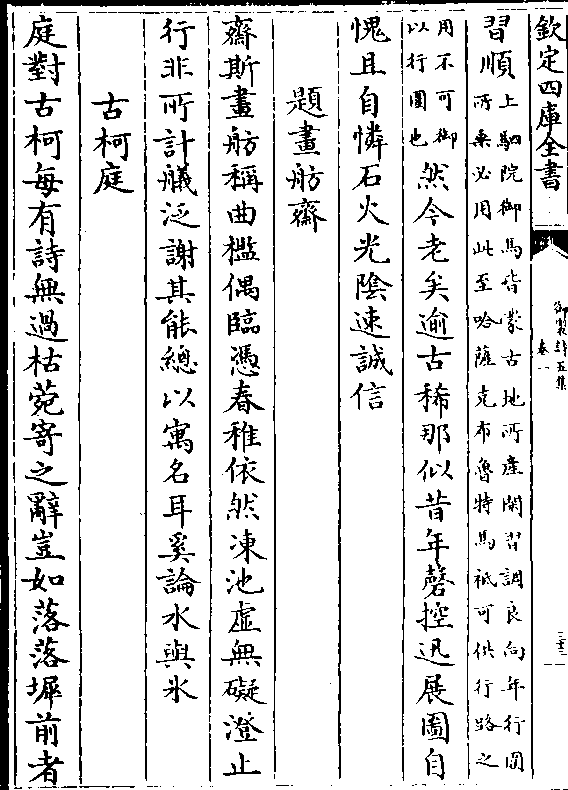 欽定四庫全書
御製詩五集
卷一
三十三
習順上駟院御馬皆蒙古地所產閑習調良向年行圍
所乘必用此至哈薩克布魯特馬祗可供行路之
用不可御
以行圍也然今老矣逾古稀那似昔年磬控迅展圖自
愧且自憐石火光陰速誠信
題畫舫齋
齋斯畫舫稱曲檻偶臨憑春稚依然凍池虛無礙澄止
行非所計艤泛謝其能總以寓名耳奚論水與氷
古柯庭
庭對古柯每有詩無過枯菀寄之辭豈如落落墀前者